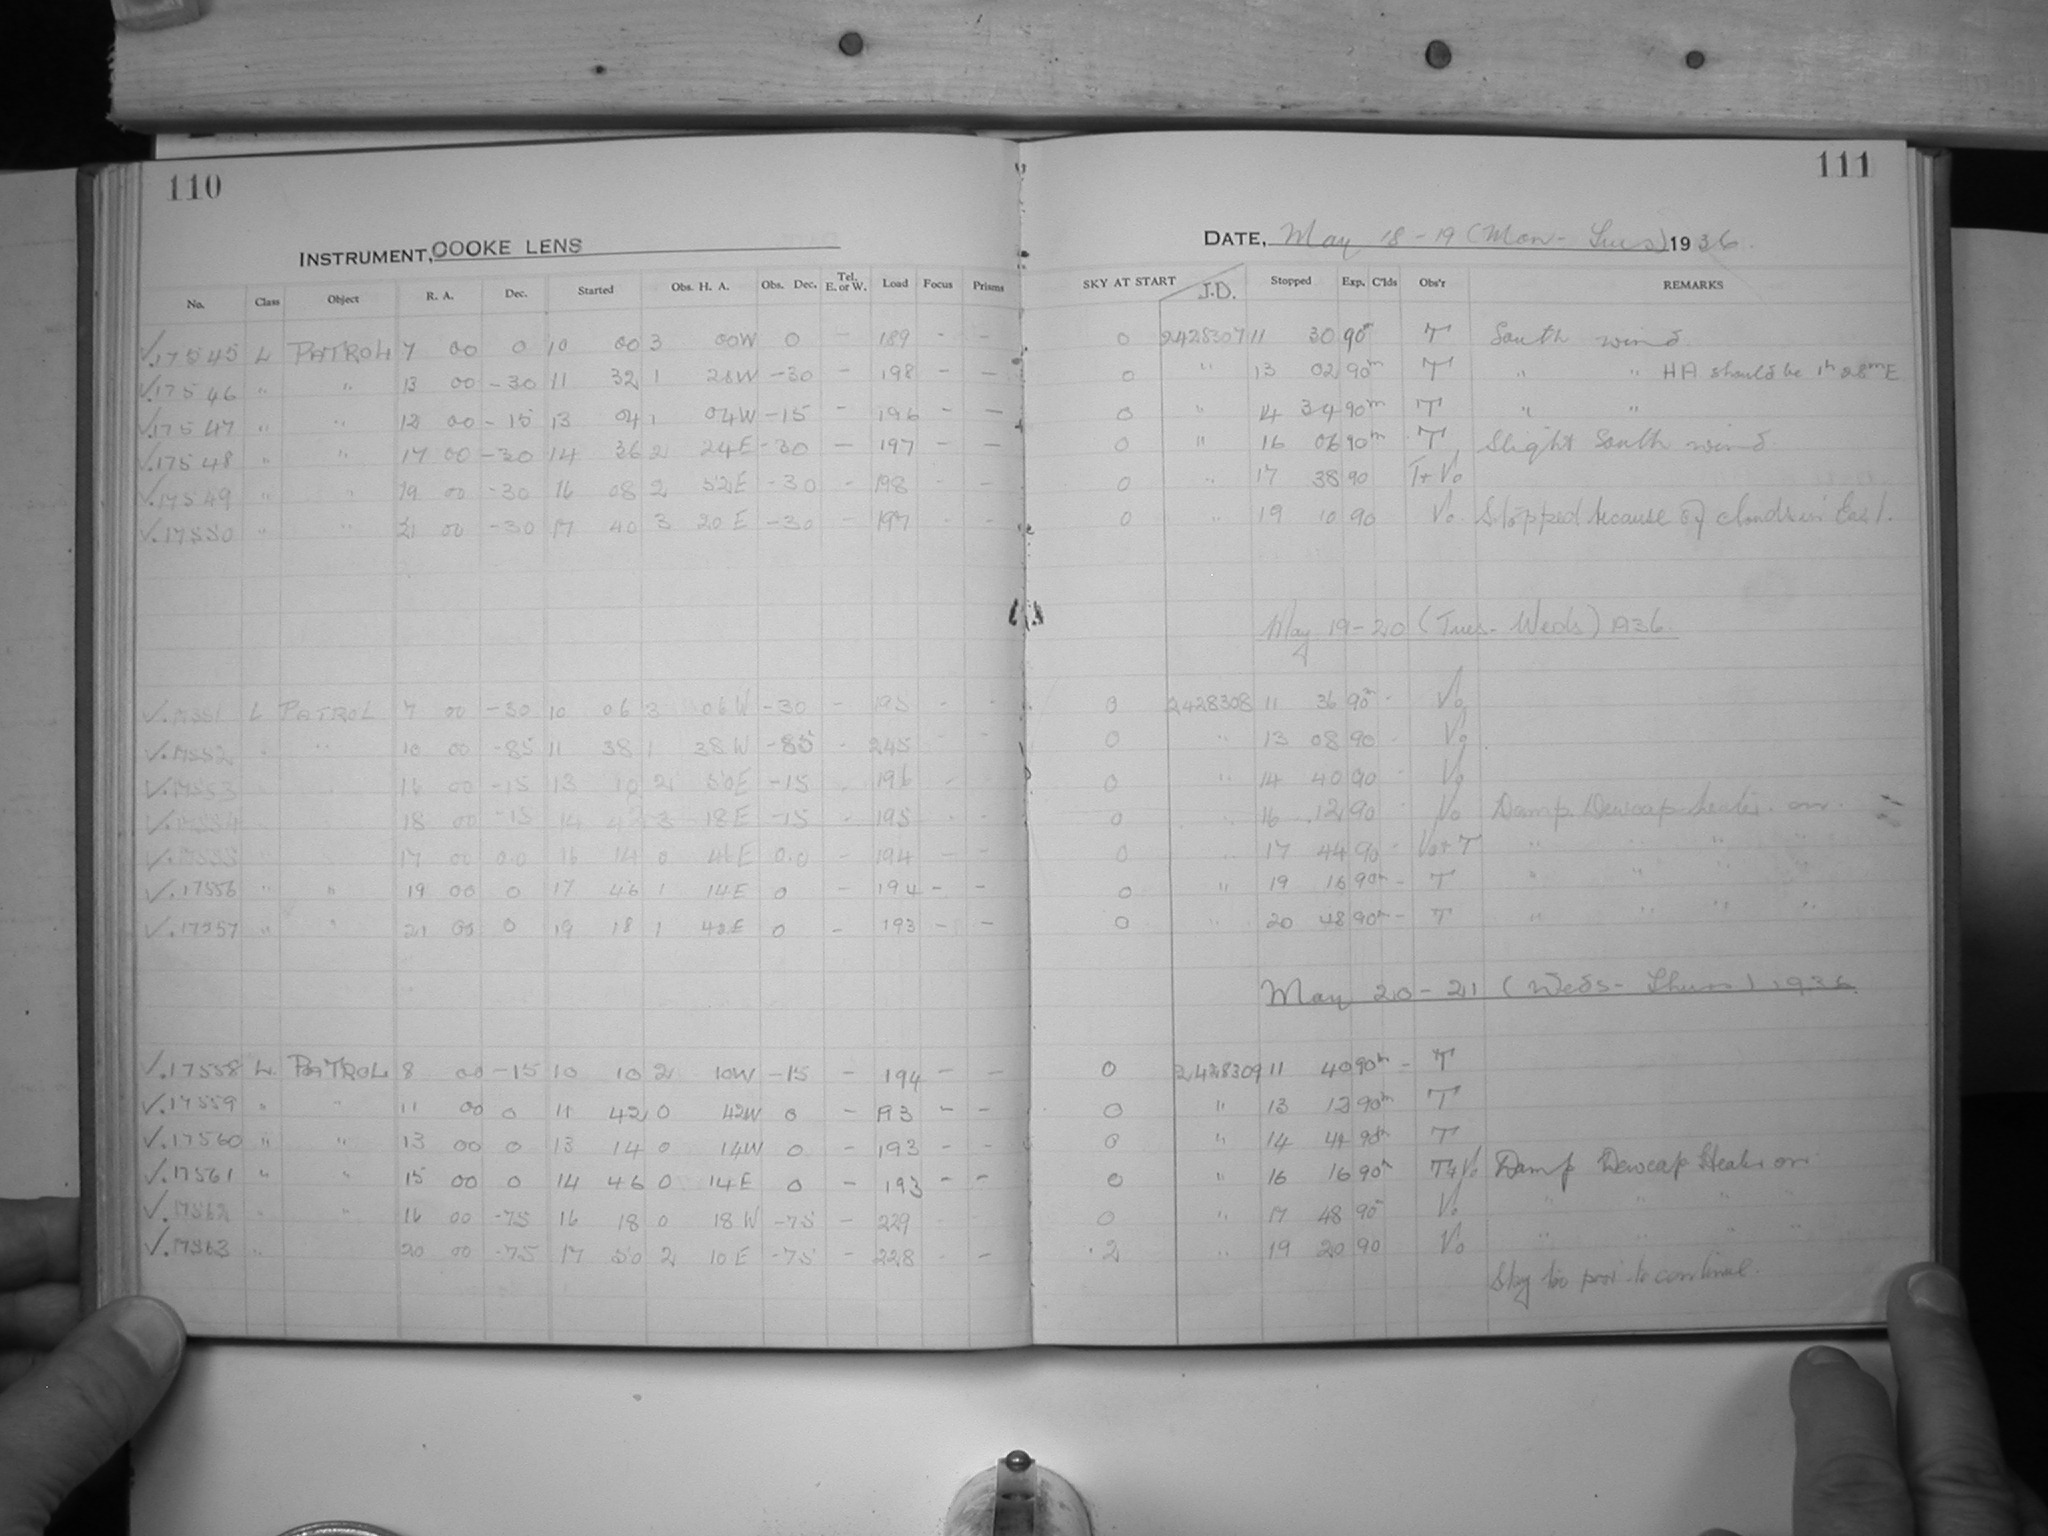 110
INSTRUMENT, COOKE LENS
No. Class Object R. A. Dec. Started Obs. H. A. Obs. Dec. Tel. E. or W. Load Focus Prisms
✓.17545 L PATROL 7 00 0 10 00 3 00W 0 - 189 - -
✓.17546 " " 13 00 -30 11 32 1 28W -30 - 198 - -
✓.17547 " " 12 00 -15 13 04 1 04W -15 - 196 - -
✓.17548 " " 17 00 -30 14 36 2 24E -30 - 197 - -
✓.17549 " " 19 00 -30 16 08 2 52E -30 - 198 - -
✓.17550 " " 21 00 -30 17 40 3 20E -30 - 197 - -
✓.17551 L PATROL 7 00 -30 10 06 3 06W -30 - 195 - -
✓.17552 " " 10 00 -85 11 38 1 38W -85 - 245 - -
✓.17553 16 00 -15 13 10 2 50E -15 - 196 - -
✓.17554 18 00 -15 14 42 3 18E -15 - 195 - -
✓.17555 17 00 0.0 16 14 0 46E 0.0 - 194 - -
✓.17556 " " 19 00 0 17 46 1 14E 0 - 194 - -
✓.17557 " " 21 00 0 19 18 1 42E 0 - 193 - -
✓.17558 L. PATROL 8 00 -15 10 10 2 10W -15 - 194 - -
✓.17559 " " 11 00 0 11 42 0 42W 0 - 193 - -
✓.17560 " " 13 00 0 13 14 0 14W 0 - 193 - -
✓.17561 " " 15 00 0 14 46 0 14E 0 - 193 - -
✓.17562 " " 16 00 -75 16 18 0 18W -75 - 229 - -
✓.17563 " 20 00 -75 17 50 2 10E -75 - 228 - -
111
DATE, May 18-19 (Mon-Tues) 1936.
SKY AT START J.D. Stopped Exp. C'lds Obs'r REMARKS
0 2428307 11 30 90m T South wind
0 " 13 02 90m T " " HA should be 1h 28m E
0 " 14 34 90m T " "
0 " 16 06 90m T Slight South wind
0 " 17 38 90 T+Vo
0 " 19 10 90 Vo Stopped because of clouds in East.
May 19-20 (Tues-Weds) 1936.
0 2428308 11 36 90m - Vo
0 " 13 08 90 - Vo
0 " 14 40 90 - Vo
0 " 16 12 90 - Vo Damp. Dewcap heater on.
0 " 17 44 90 - Vo+T " " " "
0 " 19 16 90m - T " " " "
0 " 20 48 90m - T " " " "
May 20-21 (Weds-Thurs) 1936.
0 2428309 11 40 90m - T
0 " 13 12 90m T
0 " 14 44 90m T
0 " 16 16 90m T+Vo Damp Dewcap Heater on
0 " 17 48 90m Vo " " " "
2 " 19 20 90 Vo " " " "
Sky too poor to continue.